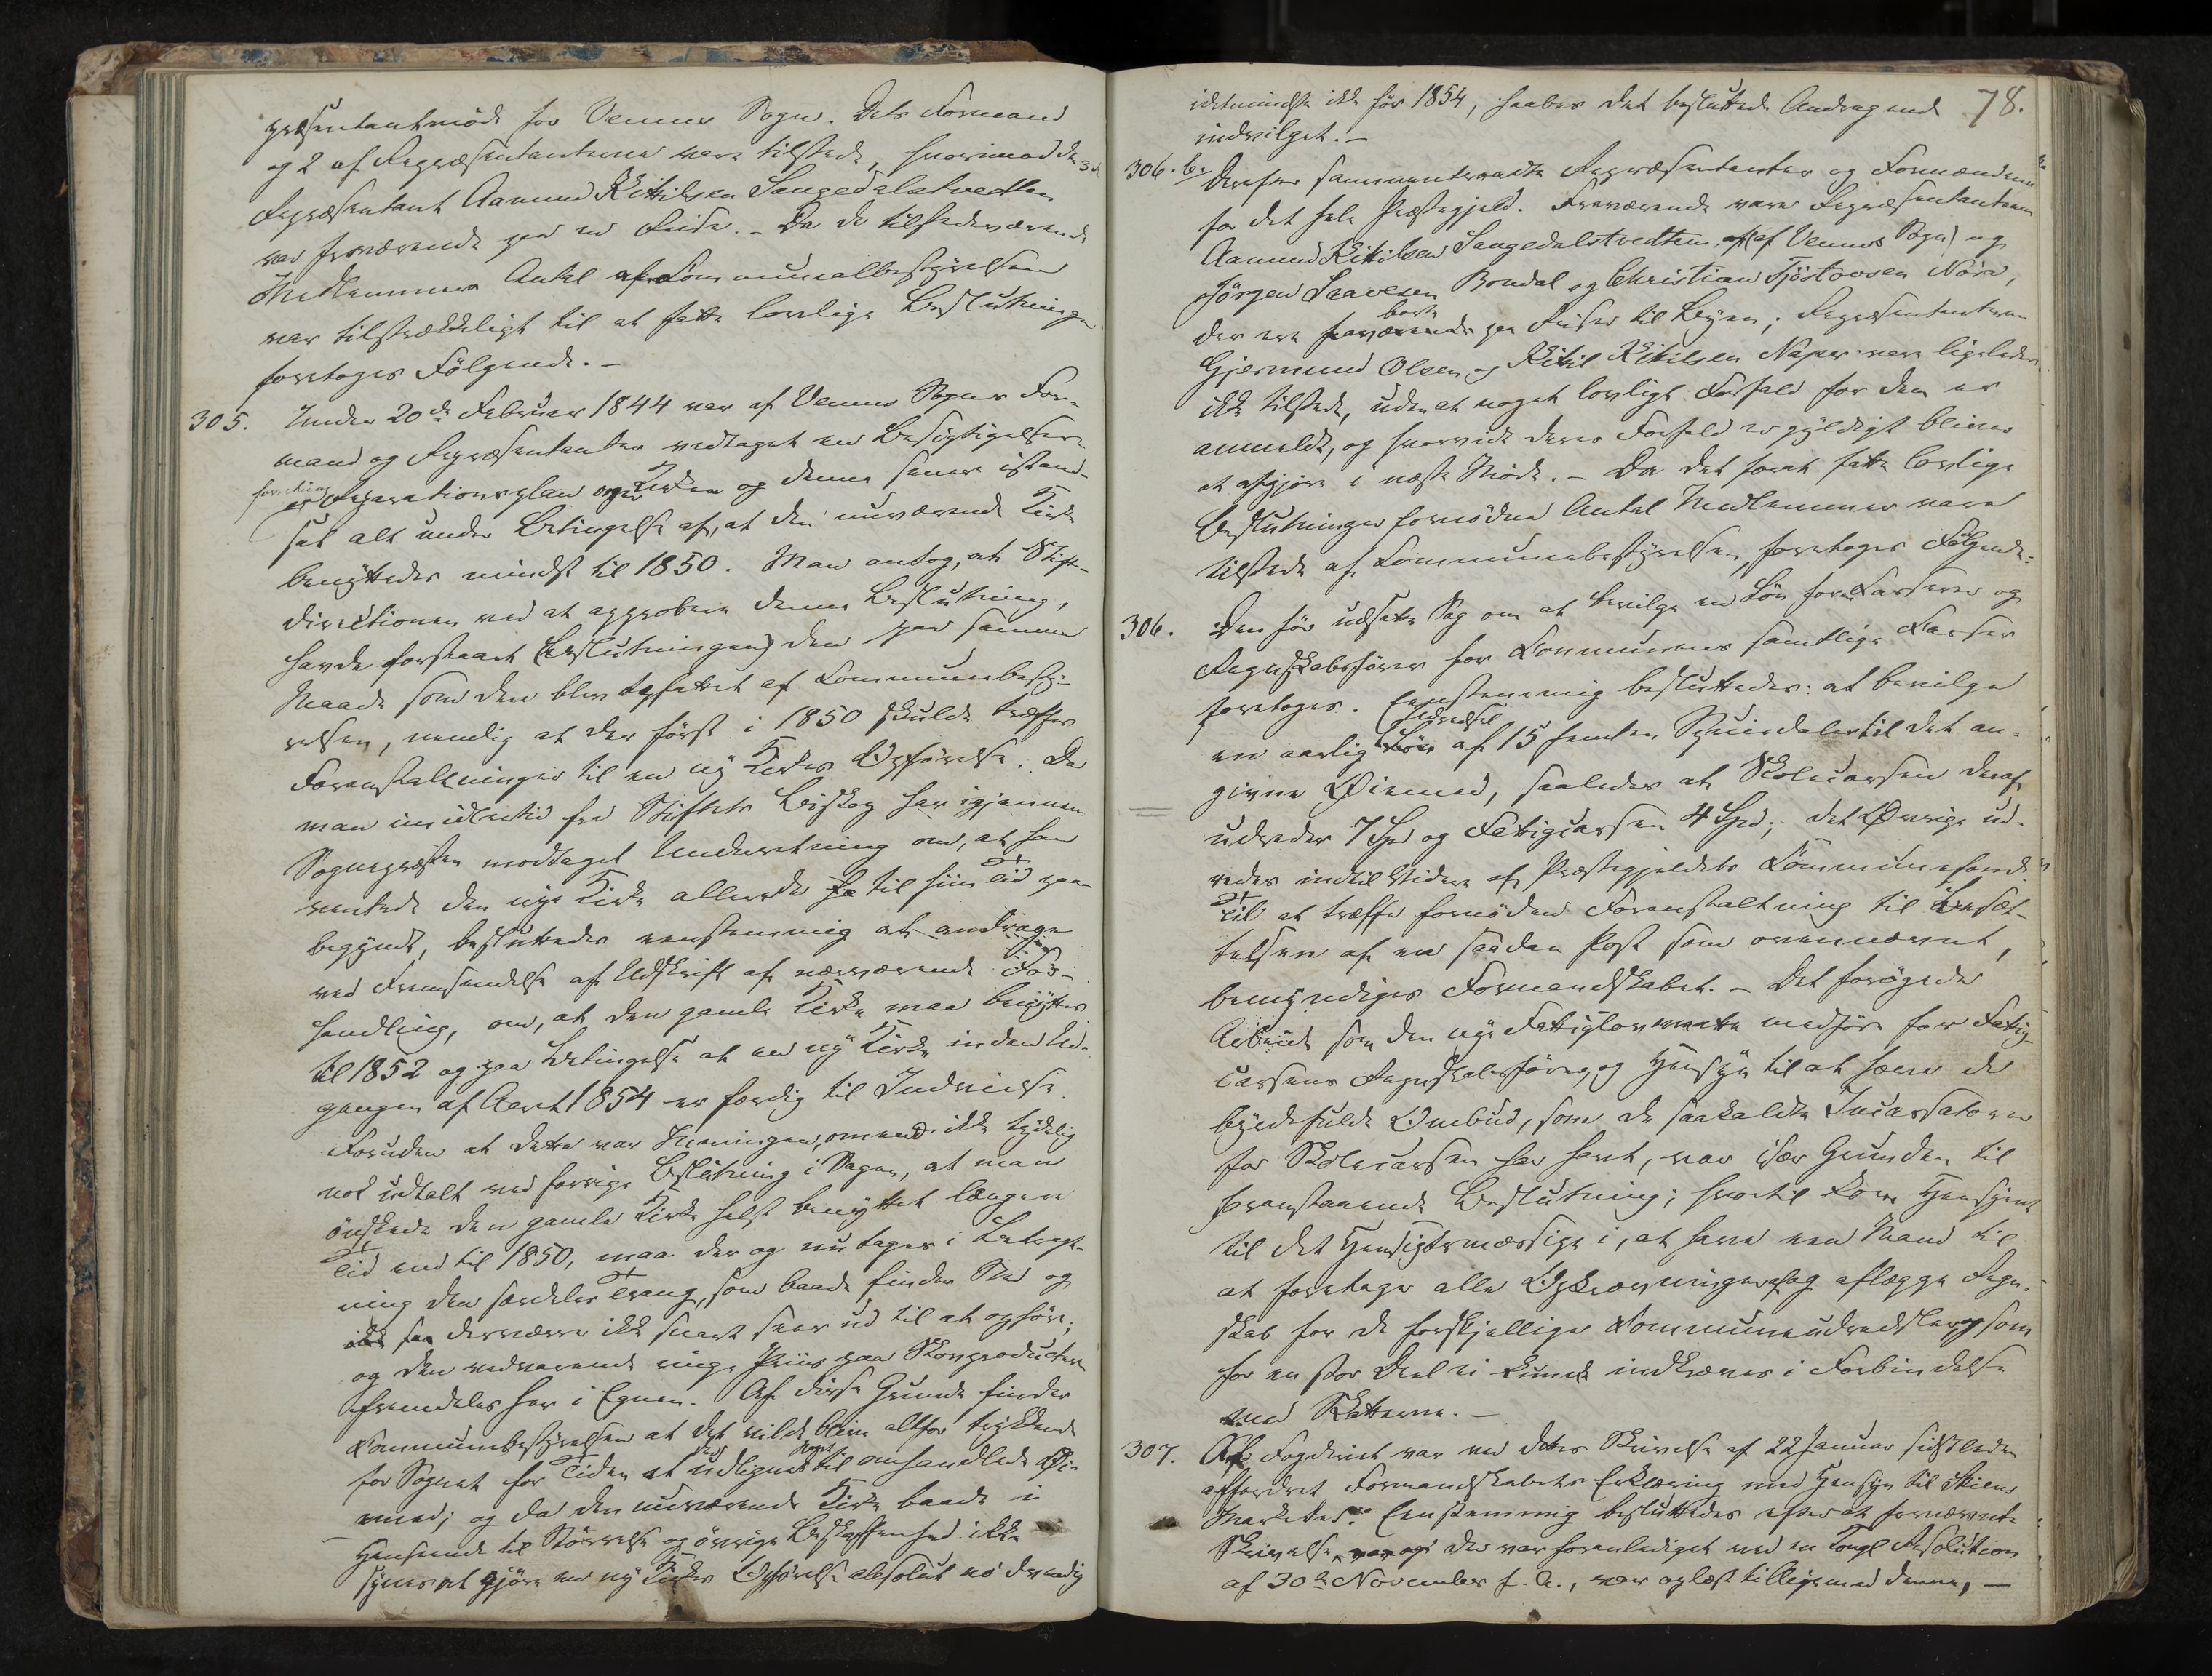 præsentantmöde for Vennes Sogn. Dets Formand
og 2 af Repræsentanterne vare tilstede, hvorimod den 3die
Repræsentant Aamund Kittilsen Langedalstvedten
var fraværende paa en Reise. - Da de tilstedeværende
Medlemmers Antal af Communalbestyrelsen
var tilstrækkeligt til at fatte lovlige Beslutninger
foretoges Følgende. -
305. Under 20de Februar 1844 var af Vennes Sogns For-
mand og Repræsentanter vedtaget en Besigtigelses-
og Reparationsplan over Kirken og denne senere istand-
sat alt under Betingelse af, at den nuværende Kirke
benyttedes mindst til 1850. Man antog, at Stift-
directionen ved at approbere denne Beslutning,
havde forstaaet Beslutningen den paa samme
Maade som den blev opfattet af Communebesty-
relsen, nemlig at der først i 1850 skulde træffes
Foranstaltninger til en ny Kirkes Opførelse. Da
man imidlertid fra Stiftets Biskop har igjennem
Sognepræsten modtaget Underretning om, at han
ventede den nye Kirke allerede til siin Tid paa-
begyndt, besluttedes eenstemmig at andrage
ved Fremsendelse af Udskrift af nærværende For-
handling, om, at den gamle Kirke maa benyttes
til 1852 og paa Betingelse at en ny Kirke inden Ud-
gangen af Aaret 1854 er færdig til Indvielse.
Foruden at dette var Meningen, omend ikke tydelig
nok udtalt ved forrige Beslutning i Sagen, at man
önskede den gamle Kirke helst benyttet længere
Tid end til 1850, maa der og nu tages i Betragt-
ning den særdeles Trang, som baade finder Sted og
ikke saa desværre ikke snart seer ud til at ophöre;
og den vedvarende ringe Priis paa Skovproducter
fremdeles her i Egnen. Af disse Grunde finder
Communebestyrelsen at det vilde blive altfor trykkende
for Sognet for Tiden at udlignes til omhandlede Øi-
emed; og da den nuværende Kirke baade i
Henseende til Störrelse og övrige Beskaffenhed ikke
synes at gjøre en ny Kirkes Opförelse absolut nödvendig
78.
idetmindste ikke før 1854, haabes det besluttede Andragende
indvilget. -
306. b. Derefter sammentraadte Repræsentanter og Formændene
for det hele Præstegjeld. Fraværende vare Repræsentanterne
Aamund Kittilsen Langedalstvedten (af Vennes Sogn) og
Jörgen Saavesen Bondal og Christian Tjöstovsen Nöra,
der ere borte fraværende paa Reiser til Byen; Repræsentanterne
Gjermund Olsen og Kittil Kittilsen Naper vare ligeledes
ikke tilstede, uden at noget lovligt Forfald for dem er
anmeldt, og hvorvidt deres Forfald er gyldigt bliver
at afgjøre i næste Møde. - Da det for at fatte lovlige
Beslutninger fornødne Antal Medlemmer vare
tilstede af Communebestyrelsen, foretoges Følgende:
306. Den før udsatte Sag om at bevilge en Løn for Casserer og
Regnskabsfører for Communens samtlige Casser
foretoges. Eenstemmig besluttedes: at bevilge
en aarlig Udredsel Løn af 15 femten Speciedaler til det an-
givne Øiemed, saaledes at Skolecassen deraf
udreder 7 Spd og Fattigcassen 4 Spd; det Øvrige ud-
redes indtil Videre af Præstegjeldets Communefond.
Til at træffe fornöden Foranstaltning til Besæt-
telsen af en saadan Post som ovennævnt,
bemyndiges Formandskabet. - Det forøgede
Arbeide som den nye Fattiglov maatte medføre for Fattig-
cassens Regnskabsfører, og Hensyn til at hæve de
byrdefulde Ombud, som de saakaldte Incassatorer
for Skolecassen har havt, var især Grunden til
foranstaaende Beslutning; hvortil kom Hensynet
til det Hensigtsmæssige i, at have een Mand til
at foretage alle Opkrævninger og aflægge Regn-
skab for de forskjellige Communeudredsler, som
for en stor Deel ei kunde indkræves i Forbindelse
med Skatterne. -
307. Af Fogderiet var ved dets Skrivelse af 22 Januar sidstleden
affordret Formandskabets Erklæring med Hensyn til Skiens
Markeder. Eenstemmig besluttedes efterat fornævnte
Skrivelse, der var foranlediget ved en Kongl. Resolution
af 30te November f. A., var oplæst tilligemed denne, -